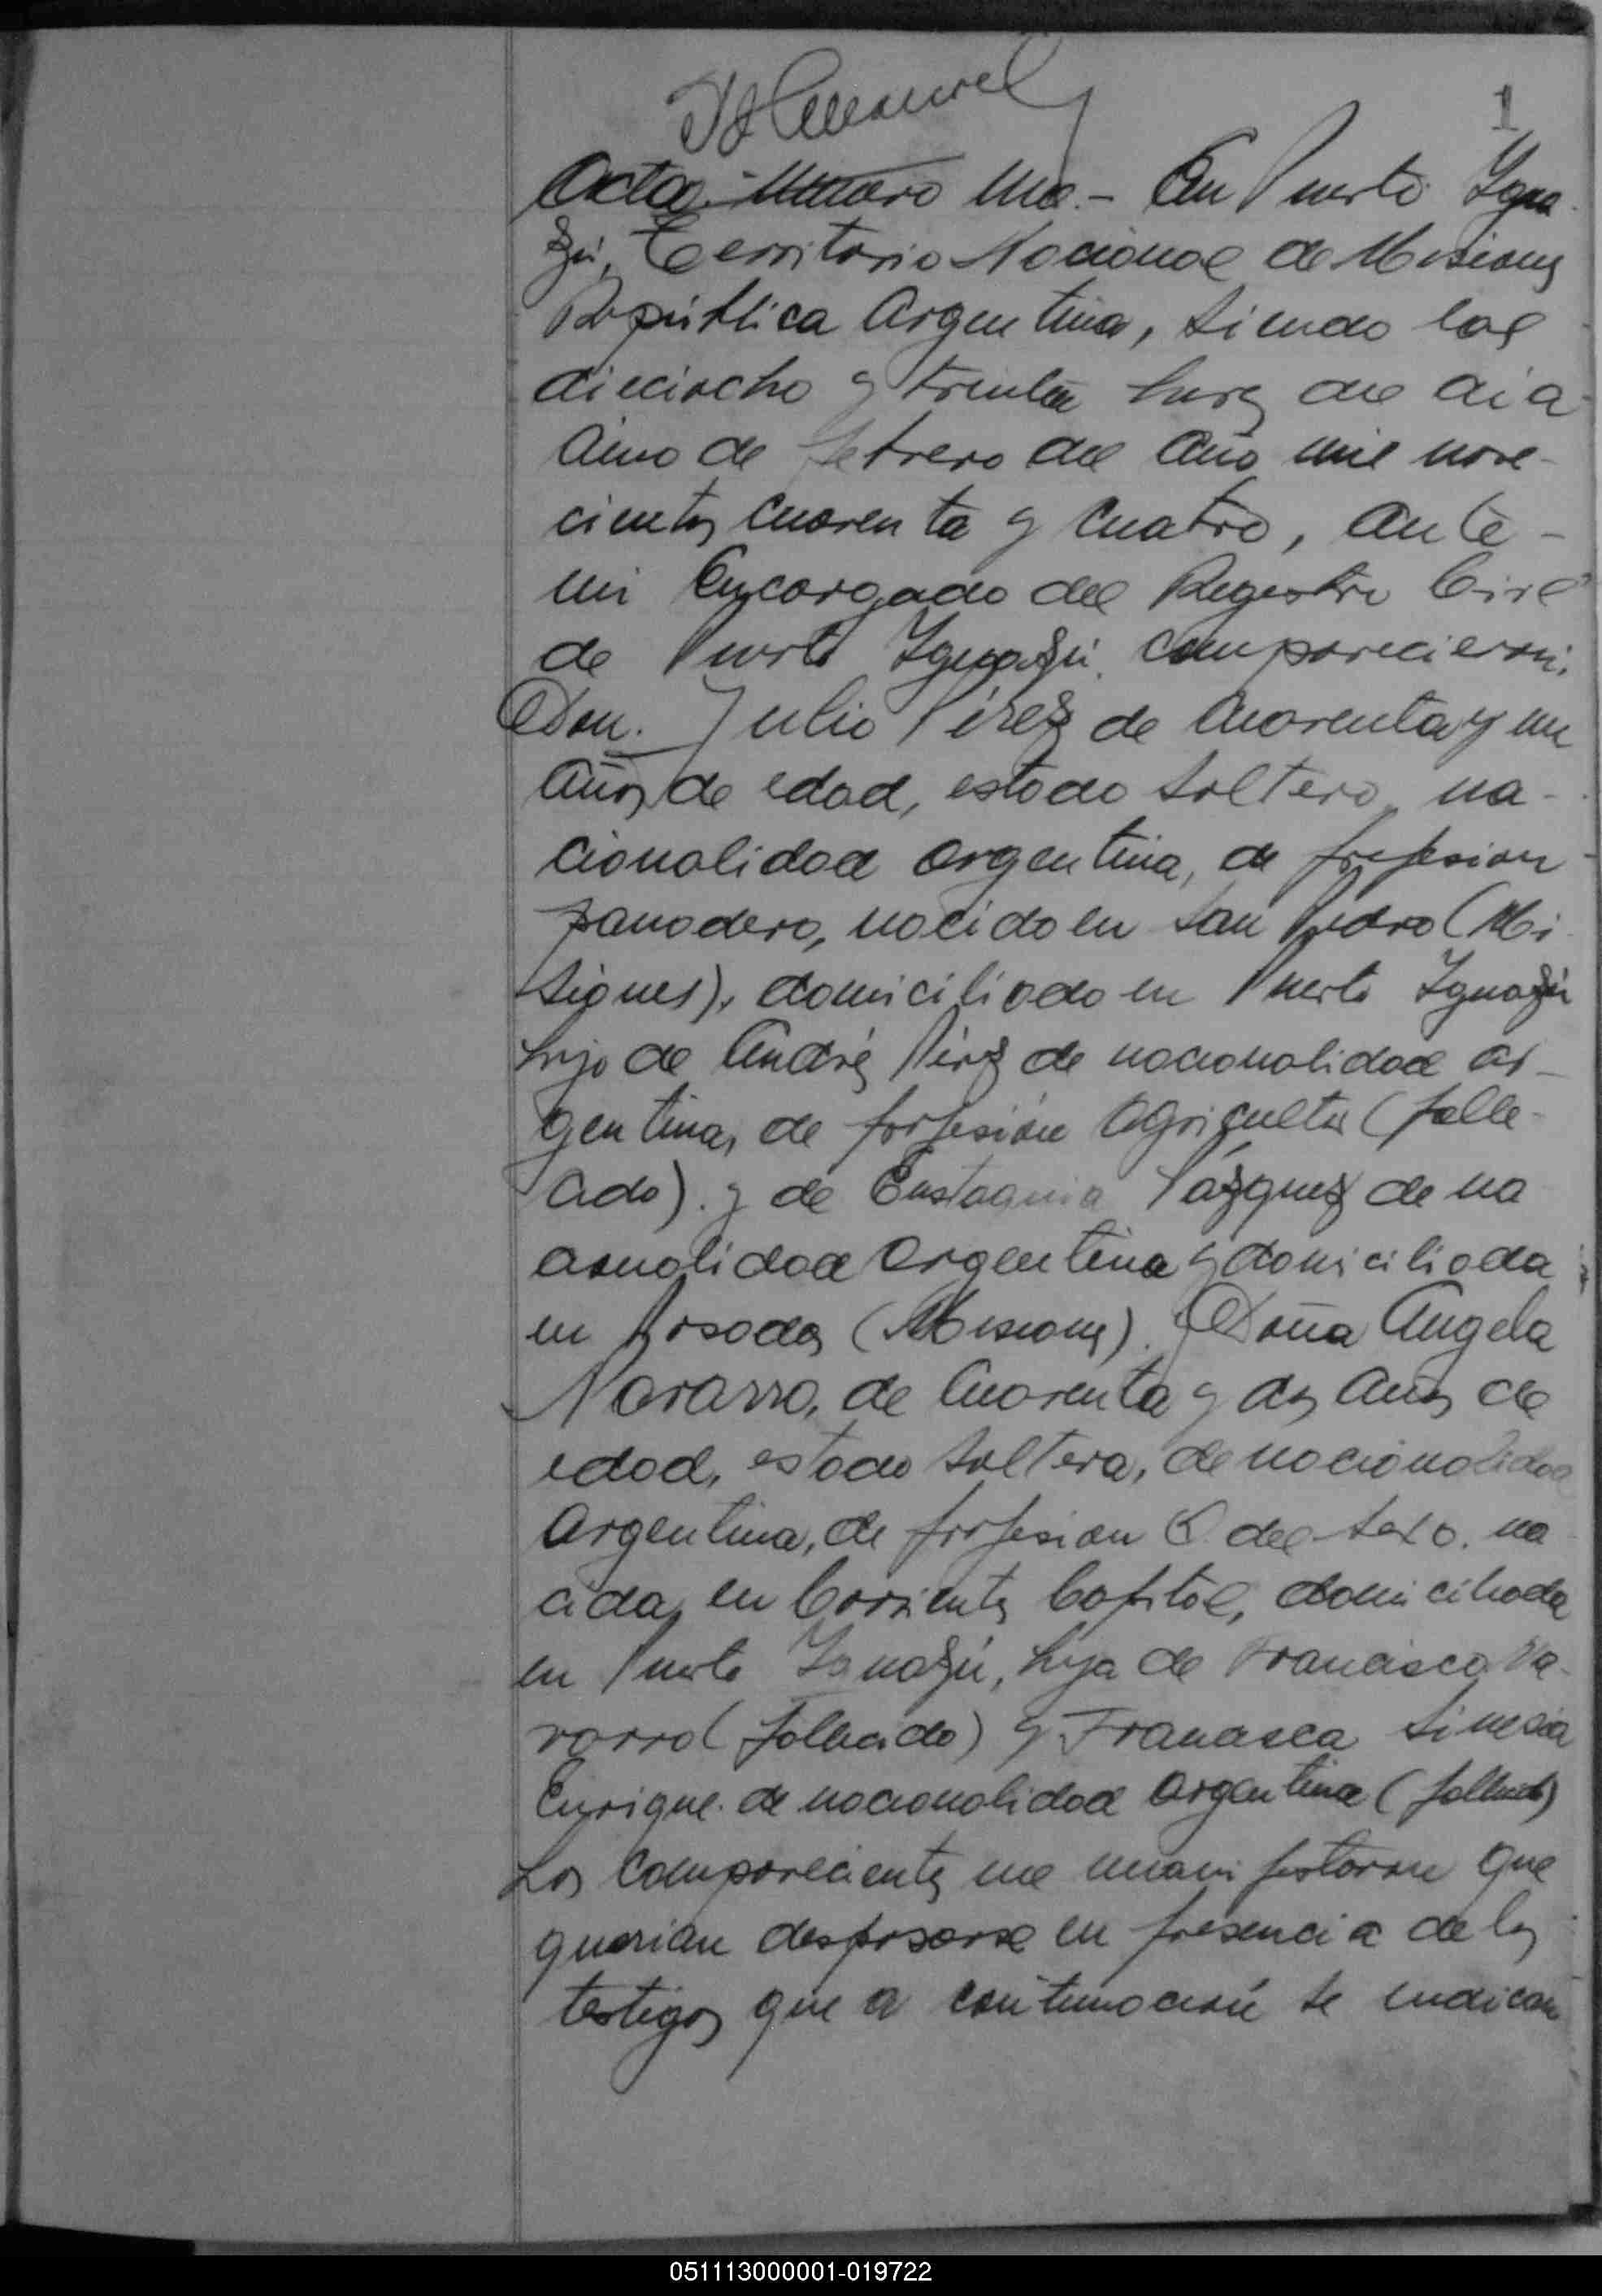 1
Acta número uno.- En Puerto Igua
zú, Territorio Nacional de Misiones
República Argentina, siendo las
dieciocho y treinta horas del dia
cinco de febrero del año mil nove-
cientos cuarenta y cuatro, ante-
mi Encargado del Registro Civil
de Puerto Iguazú comparecieron:
Don. Julio Pérez de cuarenta y un
años de edad, estado soltero, na-
cionalidad argentina, de profesion
panadero, nacido en San Pedro (Mi
siones), domiciliado en Puerto Iguazú
hijo de Andrés Pérez de nacionalidad ar-
gentina, de profesión agricultor (falle-
cido). y de Eustaquia Vázquez de na
cionalidad argentina y domiciliada
en Posadas (Misiones). y Doña Angela
Navarro, de cuarenta y dos años de
edad, estado soltera, de nacionalidad
argentina, de profesion Q. del sexo. na
cida, en Corrientes Capital, domiciliada
en Puerto Iguazú, hija de Francisco Na-
varro (fallecido) y Francisca Sinesia
Enrique. de nacionalidad argentina (fallecida)
Los comparecientes me manifestaron que
querian desposarse en presencia de los
testigos que a continuación se indican
051113000001-019722